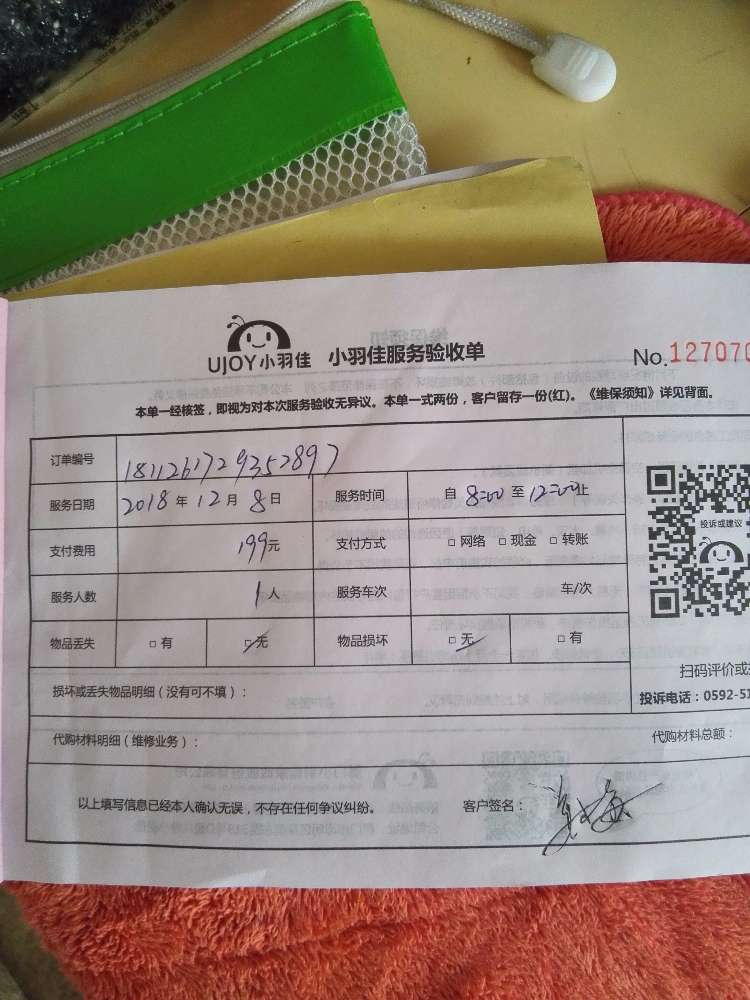 UJOY小羽佳 小羽佳服务验收单 No.127070
本单一经核签，即视为对本次服务验收无异议。本单一式两份，客户留存一份(红)。《维保须知》详见背面。
订单编号 1811261729352897
服务日期 2018年12月8日 服务时间 自8:00至12:00止
支付费用 199元 支付方式 □网络 □现金 □转账
服务人数 1人 服务车次 车/次
物品丢失 □有 □无 物品损坏 □无 □有
投诉或建议
扫码评价或
投诉电话：0592-51
损坏或丢失物品明细（没有可不填）：
代购材料明细（维修业务）： 代购材料总额：
以上填写信息已经本人确认无误，不存在任何争议纠纷。 客户签名：